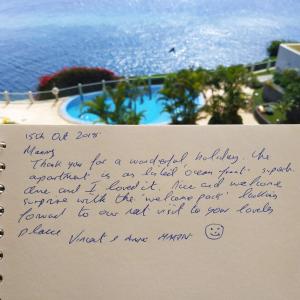 15th Oct 2018
Thank you for a wonderful holiday. The
apartment is as lated 'ocean front' superb.
Anne and I loved it. Nice and welcome
surprise with the 'welcome pack' looking
forward to our next visit to your lovely
place Vincent & Anne